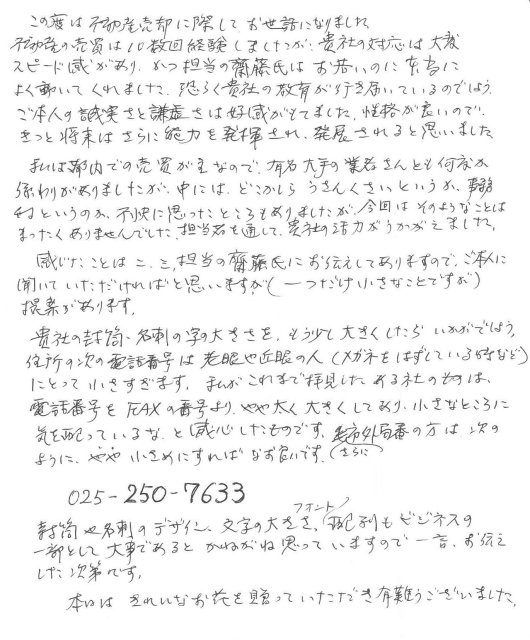 この度は不動産売却に際してお世話になりました
不動産の売買は10数回経験しましたが、貴社の対応は大変
スピード感があり、かつ担当の齋藤氏はお若いのに本当に
よく動いてくれました。恐らく貴社の教育が行き届いているのでしょう。
ご本人の誠実さと謙虚さは好感がもてました。性格が良いので、
きっと将来はさらに能力を発揮され、発展されると思いました。
私は都内での売買が主なので、有名大手の業者さんとも何度か
係わりがありましたが、中には、どこかしらうさんくさいというか、事務
的というのか、不快に思ったところもありましたが、今回はそのようなことは
まったくありませんでした。担当者を通して、貴社の活力がうかがえました。
感じたことは二、三、担当の齋藤氏にお伝えしてありますので、ご本人に
聞いていただければと思いますが(一つだけ小さなことですが)
提案があります。
貴社の封筒、名刺の字の大きさを、もう少し大きくしたらいかがでしょう。
住所の次の電話番号は老眼や近眼の人(メガネをはずしている時など)
にとって小さすぎます。私がこれまで拝見したある社のものは、
電話番号をFAXの番号より、やや太く大きくしてあり、小さなところに
気を配っているな、と感心したものです。市外局番の方は次の
ように、やや小さめにすればなお良いです。(さらに
025-250-7633
封筒や名刺のデザイン、文字の大きさ、フォント/配列もビジネスの
一部として大事であるとかねがね思っていますので一言、お伝え
した次第です。
本日はきれいなお花を贈っていただき有難うございました。